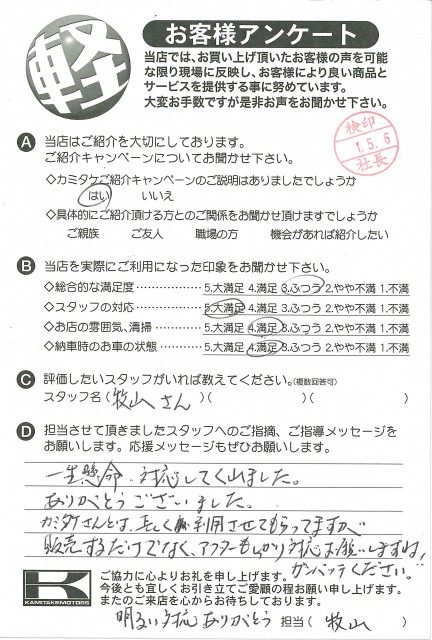 軽
お客様アンケート
当店では、お買い上げ頂いたお客様の声を可能
な限り現場に反映し、お客様により良い商品と
サービスを提供する事に努めています。
大変お手数ですが是非お声をお聞かせ下さい。
検印
1.5.6
社長
A 当店はご紹介を大切にしております。
ご紹介キャンペーンについてお聞かせ下さい。
◇カミタケご紹介キャンペーンのご説明はありましたでしょうか
はい いいえ
◇具体的にご紹介頂ける方とのご関係をお聞かせ頂けますでしょうか
ご親族 ご友人 職場の方 機会があれば紹介したい
B 当店を実際にご利用になった印象をお聞かせ下さい。
◇総合的な満足度……………… 5.大満足 4.満足 3.ふつう 2.やや不満 1.不満
◇スタッフの対応……………… 5.大満足 4.満足 3.ふつう 2.やや不満 1.不満
◇お店の雰囲気、清掃………… 5.大満足 4.満足 3.ふつう 2.やや不満 1.不満
◇納車時のお車の状態………… 5.大満足 4.満足 3.ふつう 2.やや不満 1.不満
C 評価したいスタッフがいれば教えてください。(複数回答可)
スタッフ名(牧山さん)( )( )
D 担当させて頂きましたスタッフへのご指摘、ご指導メッセージを
お願いします。応援メッセージもぜひお願いします。
一生懸命、対応してくれました。
ありがとうございました。
カミタケさんとは、長く利用させてもらってますが
販売するだけでなく、アフターもしっかり対応お願いしますね。
ガンバッテください。
K
KAMITAKEMOTORS
ご協力に心よりお礼を申し上げます。
今後とも宜しくお引き立てご愛顧の程お願い申し上げます。
またのご来店を心からお待ちしております。
明るい対応ありがとう 担当(牧山)